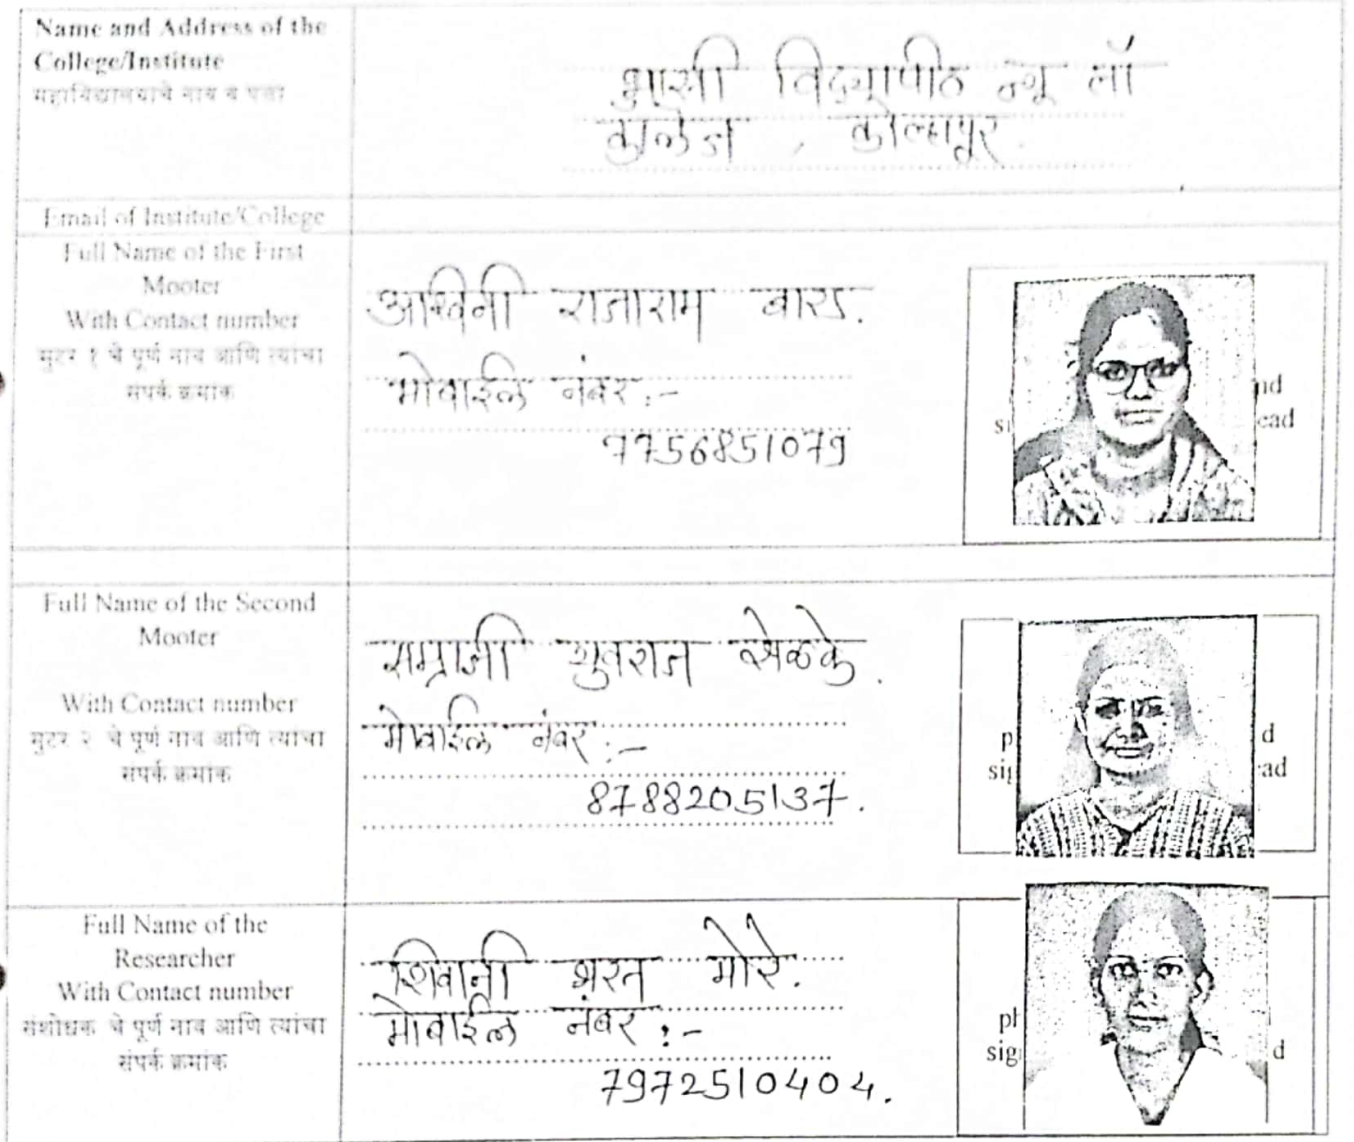 Name and Address of the
College/Institute
महाविद्यालयाचे नाव व पत्ता
विद्यापीठ न्यू लॉ
कॉलेज , कोल्हापूर.
Email of Institute/College
Full Name of the First
Mooter
With Contact number
मुटर १ चे पूर्ण नाव आणि त्यांचा
संपर्क क्रमांक
अश्विनी राजाराम
मोबाईल नंबर :-
7756851079
nd
ead
Full Name of the Second
Mooter
With Contact number
मुटर २ चे पूर्ण नाव आणि त्यांचा
संपर्क क्रमांक
सम्राज्ञी युवराज शेळके.
मोबाईल नंबर :-
8788205137.
p d
sig ad
Full Name of the
Researcher
With Contact number
संशोधक चे पूर्ण नाव आणि त्यांचा
संपर्क क्रमांक
शिवानी भरत मोरे.
मोबाईल नंबर :-
7972510404.
ph
sig d